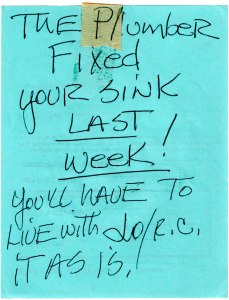 THE Plumber
Fixed
your SINK
LAST
week!
YOU'LL HAVE TO
LIVE with
IT AS IS!